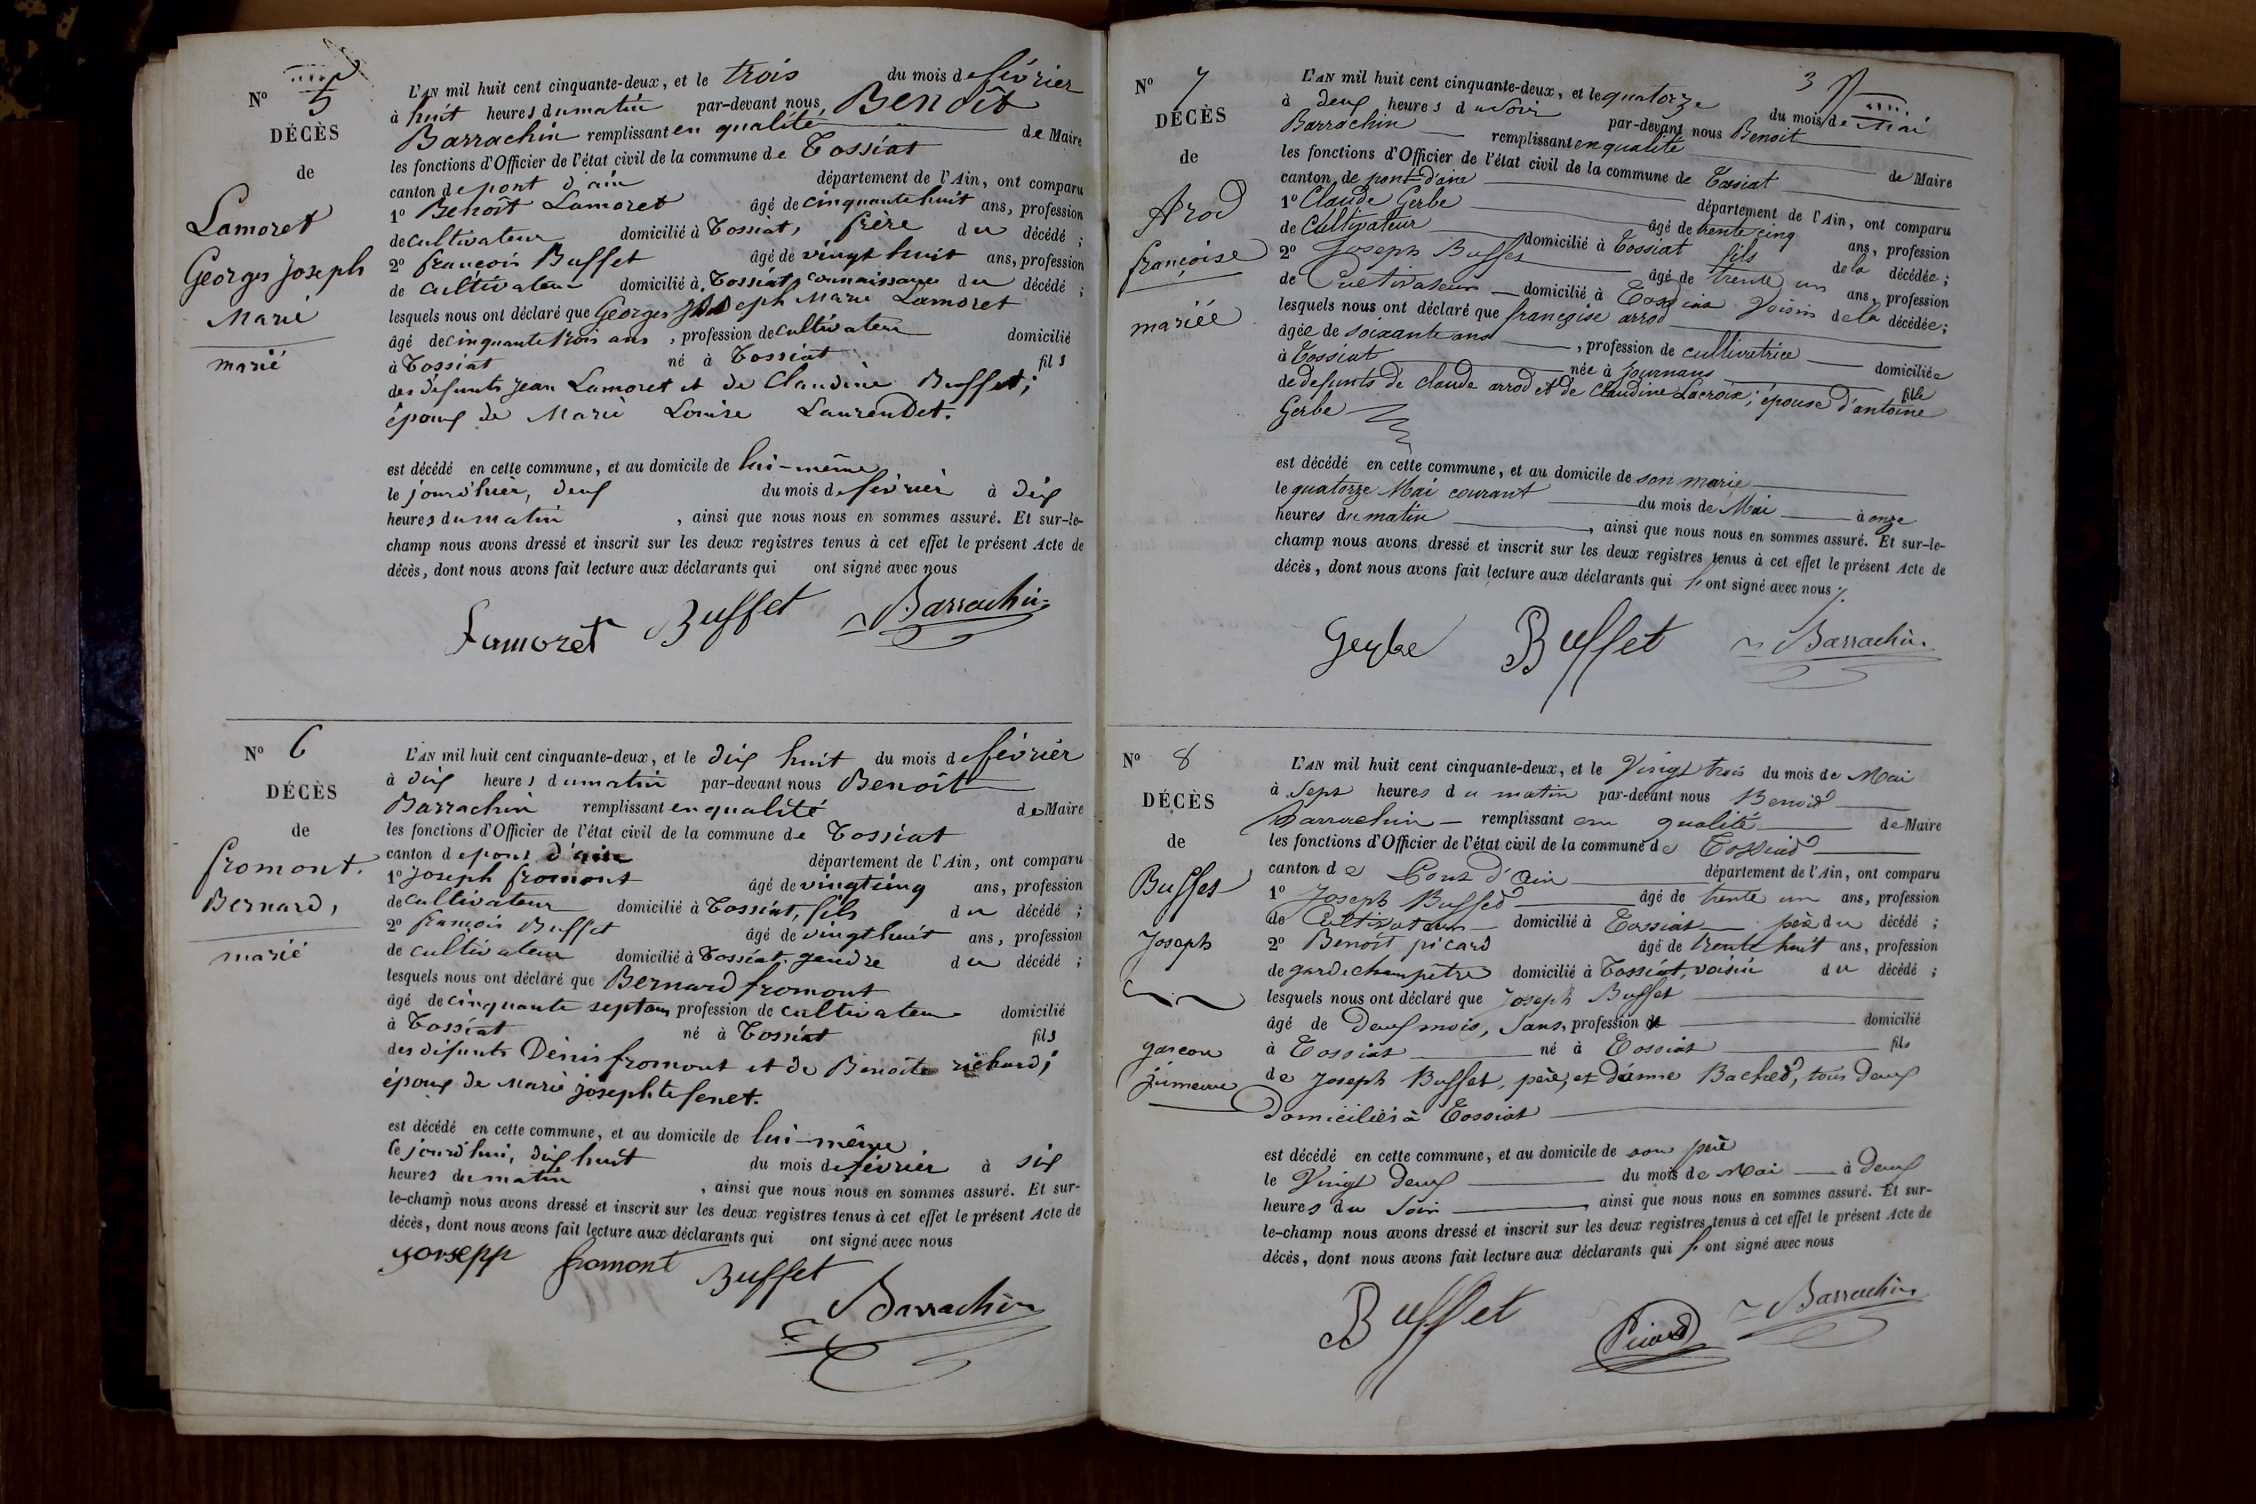 N° 5
DÉCÈS
de
Lamoret
Georges Joseph
Marie
marié
L'AN mil huit cent cinquante-deux, et le trois du mois de février
à huit heures du matin par-devant nous, Benoît
Barrachin remplissant en qualité de Maire
les fonctions d'Officier de l'état civil de la commune de Tossiat
canton de pont d'ain département de l'Ain, ont comparu
1° Benoît Lamoret âgé de cinquante huit ans, profession
de cultivateur domicilié à Tossiat, frère du décédé ;
2° françois Buffet âgé de vingt huit ans, profession
de cultivateur domicilié à Tossiat, connaissance du décédé ;
lesquels nous ont déclaré que Georges Joseph Marie Lamoret
âgé de cinquante trois ans, profession de cultivateur domicilié
à Tossiat né à Tossiat fils
des défunts Jean Lamoret et de Claudine Buffet ;
époux de Marie Louise Laurendet.
est décédé en cette commune, et au domicile de lui-même
le jour d'hier, deux du mois de février à dix
heures du matin, ainsi que nous nous en sommes assuré. Et sur-le-
champ nous avons dressé et inscrit sur les deux registres tenus à cet effet le présent Acte de
décès, dont nous avons fait lecture aux déclarants qui ont signé avec nous
Lamoret Buffet Barrachin
N° 6
DÉCÈS
de
fromont.
Bernard,
marié
L'AN mil huit cent cinquante-deux, et le dix huit du mois de février
à dix heures du matin par-devant nous Benoît
Barrachin remplissant en qualité de Maire
les fonctions d'Officier de l'état civil de la commune de Tossiat
canton de pont d'ain département de l'Ain, ont comparu
1° Joseph fromont âgé de vingt cinq ans, profession
de cultivateur domicilié à Tossiat, fils du décédé ;
2° françois Buffet âgé de vingt huit ans, profession
de cultivateur domicilié à Tossiat, gendre du décédé ;
lesquels nous ont déclaré que Bernard fromont
âgé de cinquante sept ans profession de cultivateur domicilié
à Tossiat né à Tossiat fils
des défunts Denis fromont et de Benoîte richard ;
époux de Marie josephte fenet.
est décédé en cette commune, et au domicile de lui-même
le jourd'hui, dix huit du mois de février à six
heures du matin, ainsi que nous nous en sommes assuré. Et sur-
le-champ nous avons dressé et inscrit sur les deux registres tenus à cet effet le présent Acte de
décès, dont nous avons fait lecture aux déclarants qui ont signé avec nous
josepp fromont Buffet
Barrachin
3
N° 7
DÉCÈS
de
Arod
françoise
mariée
L'AN mil huit cent cinquante-deux, et le quatorze du mois de Mai
à deux heures du soir par-devant nous Benoit
Barrachin remplissant en qualité de Maire
les fonctions d'Officier de l'état civil de la commune de Tossiat
canton de pont-d'ain département de l'Ain, ont comparu
1° Claude Gerbe âgé de trente cinq ans, profession
de Cultivateur domicilié à Tossiat fils de la décédée ;
2° Joseph Buffet âgé de trente un ans, profession
de Cultivateur domicilié à Tossiat Voisin de la décédée ;
lesquels nous ont déclaré que françoise arrod
âgée de soixante ans, profession de cultivatrice domiciliée
à Tossiat née à Journans fille
de defunts de claude arrod et de Claudine Lacroix ; épouse d'antoine
Gerbe
est décédé en cette commune, et au domicile de son marie
le quatorze Mai courant du mois de Mai à onze
heures du matin, ainsi que nous nous en sommes assuré. Et sur-le-
champ nous avons dressé et inscrit sur les deux registres tenus à cet effet le présent Acte de
décès, dont nous avons fait lecture aux déclarants qui ont signé avec nous
Buffet Barrachin
N° 8
DÉCÈS
de
Buffet
Joseph
garcon
jumeau
L'AN mil huit cent cinquante-deux, et le Vingt trois du mois de Mai
à Sept heures du matin par-devant nous Benoit
Barrachin remplissant en qualité de Maire
les fonctions d'Officier de l'état civil de la commune de Tossiat
canton de Pont d'Ain département de l'Ain, ont comparu
1° Joseph Buffet âgé de trente un ans, profession
de Cultivateur domicilié à Tossiat père du décédé ;
2° Benoît picard âgé de trente huit ans, profession
de garde champêtre domicilié à Tossiat, voisin du décédé ;
lesquels nous ont déclaré que Joseph Buffet
âgé de Deux mois, Sans, profession de domicilié
à Tossiat né à Tossiat fils
de Joseph Buffet, père, et d'anne Bachet, tous deux
Domiciliés à Tossiat
est décédé en cette commune, et au domicile de son père
le Vingt deux du mois de Mai à deux
heures du Soir, ainsi que nous nous en sommes assuré. Et sur-
le-champ nous avons dressé et inscrit sur les deux registres tenus à cet effet le présent Acte de
décès, dont nous avons fait lecture aux déclarants qui ont signé avec nous
Buffet Picard Barrachin